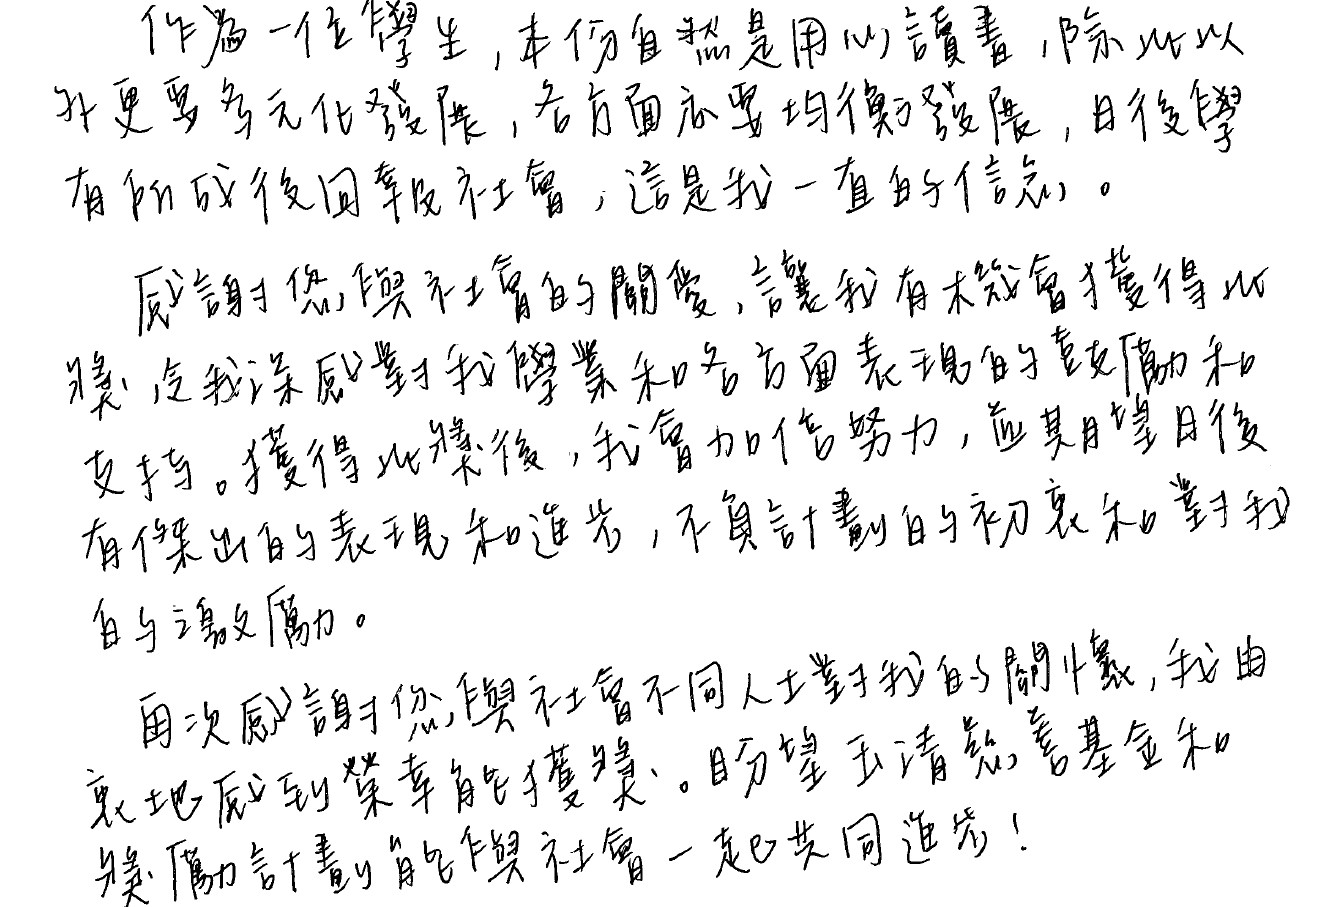 作為一位學生，本份自然是用心讀書，除此以
外更要多元化發展，各方面亦要均衡發展，日後學
有所成後回報社會，這是我一直的信念。
感謝您與社會的關愛，讓我有機會獲得此
獎，令我深感對我學業和各方面表現的鼓勵和
支持。獲得此獎後，我會加倍努力，並期望日後
有傑出的表現和進步，不負計劃的初衷和對我
的激勵。
再次感謝您與社會不同人士對我的關懷，我由
衷地感到榮幸能獲獎。盼望玉清慈善基金和
獎勵計劃能與社會一起共同進步！